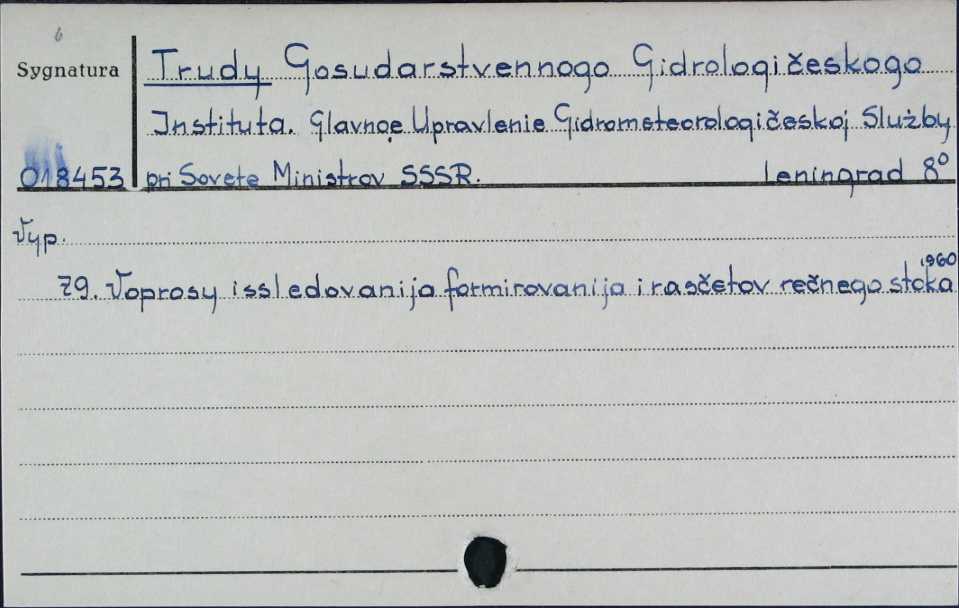 6
Sygnatura Trudy Gosudarstvennogo Gidrologičeskogo
Instituta. Glavnoe Upravlenie Gidrometeorologičeskoj Służby
018453 pri Sovete Ministrov SSSR. Leningrad 8°
Vyp.
1960
79. Voprosy issledovanija formirovanija i rasčetov rečnego stoka